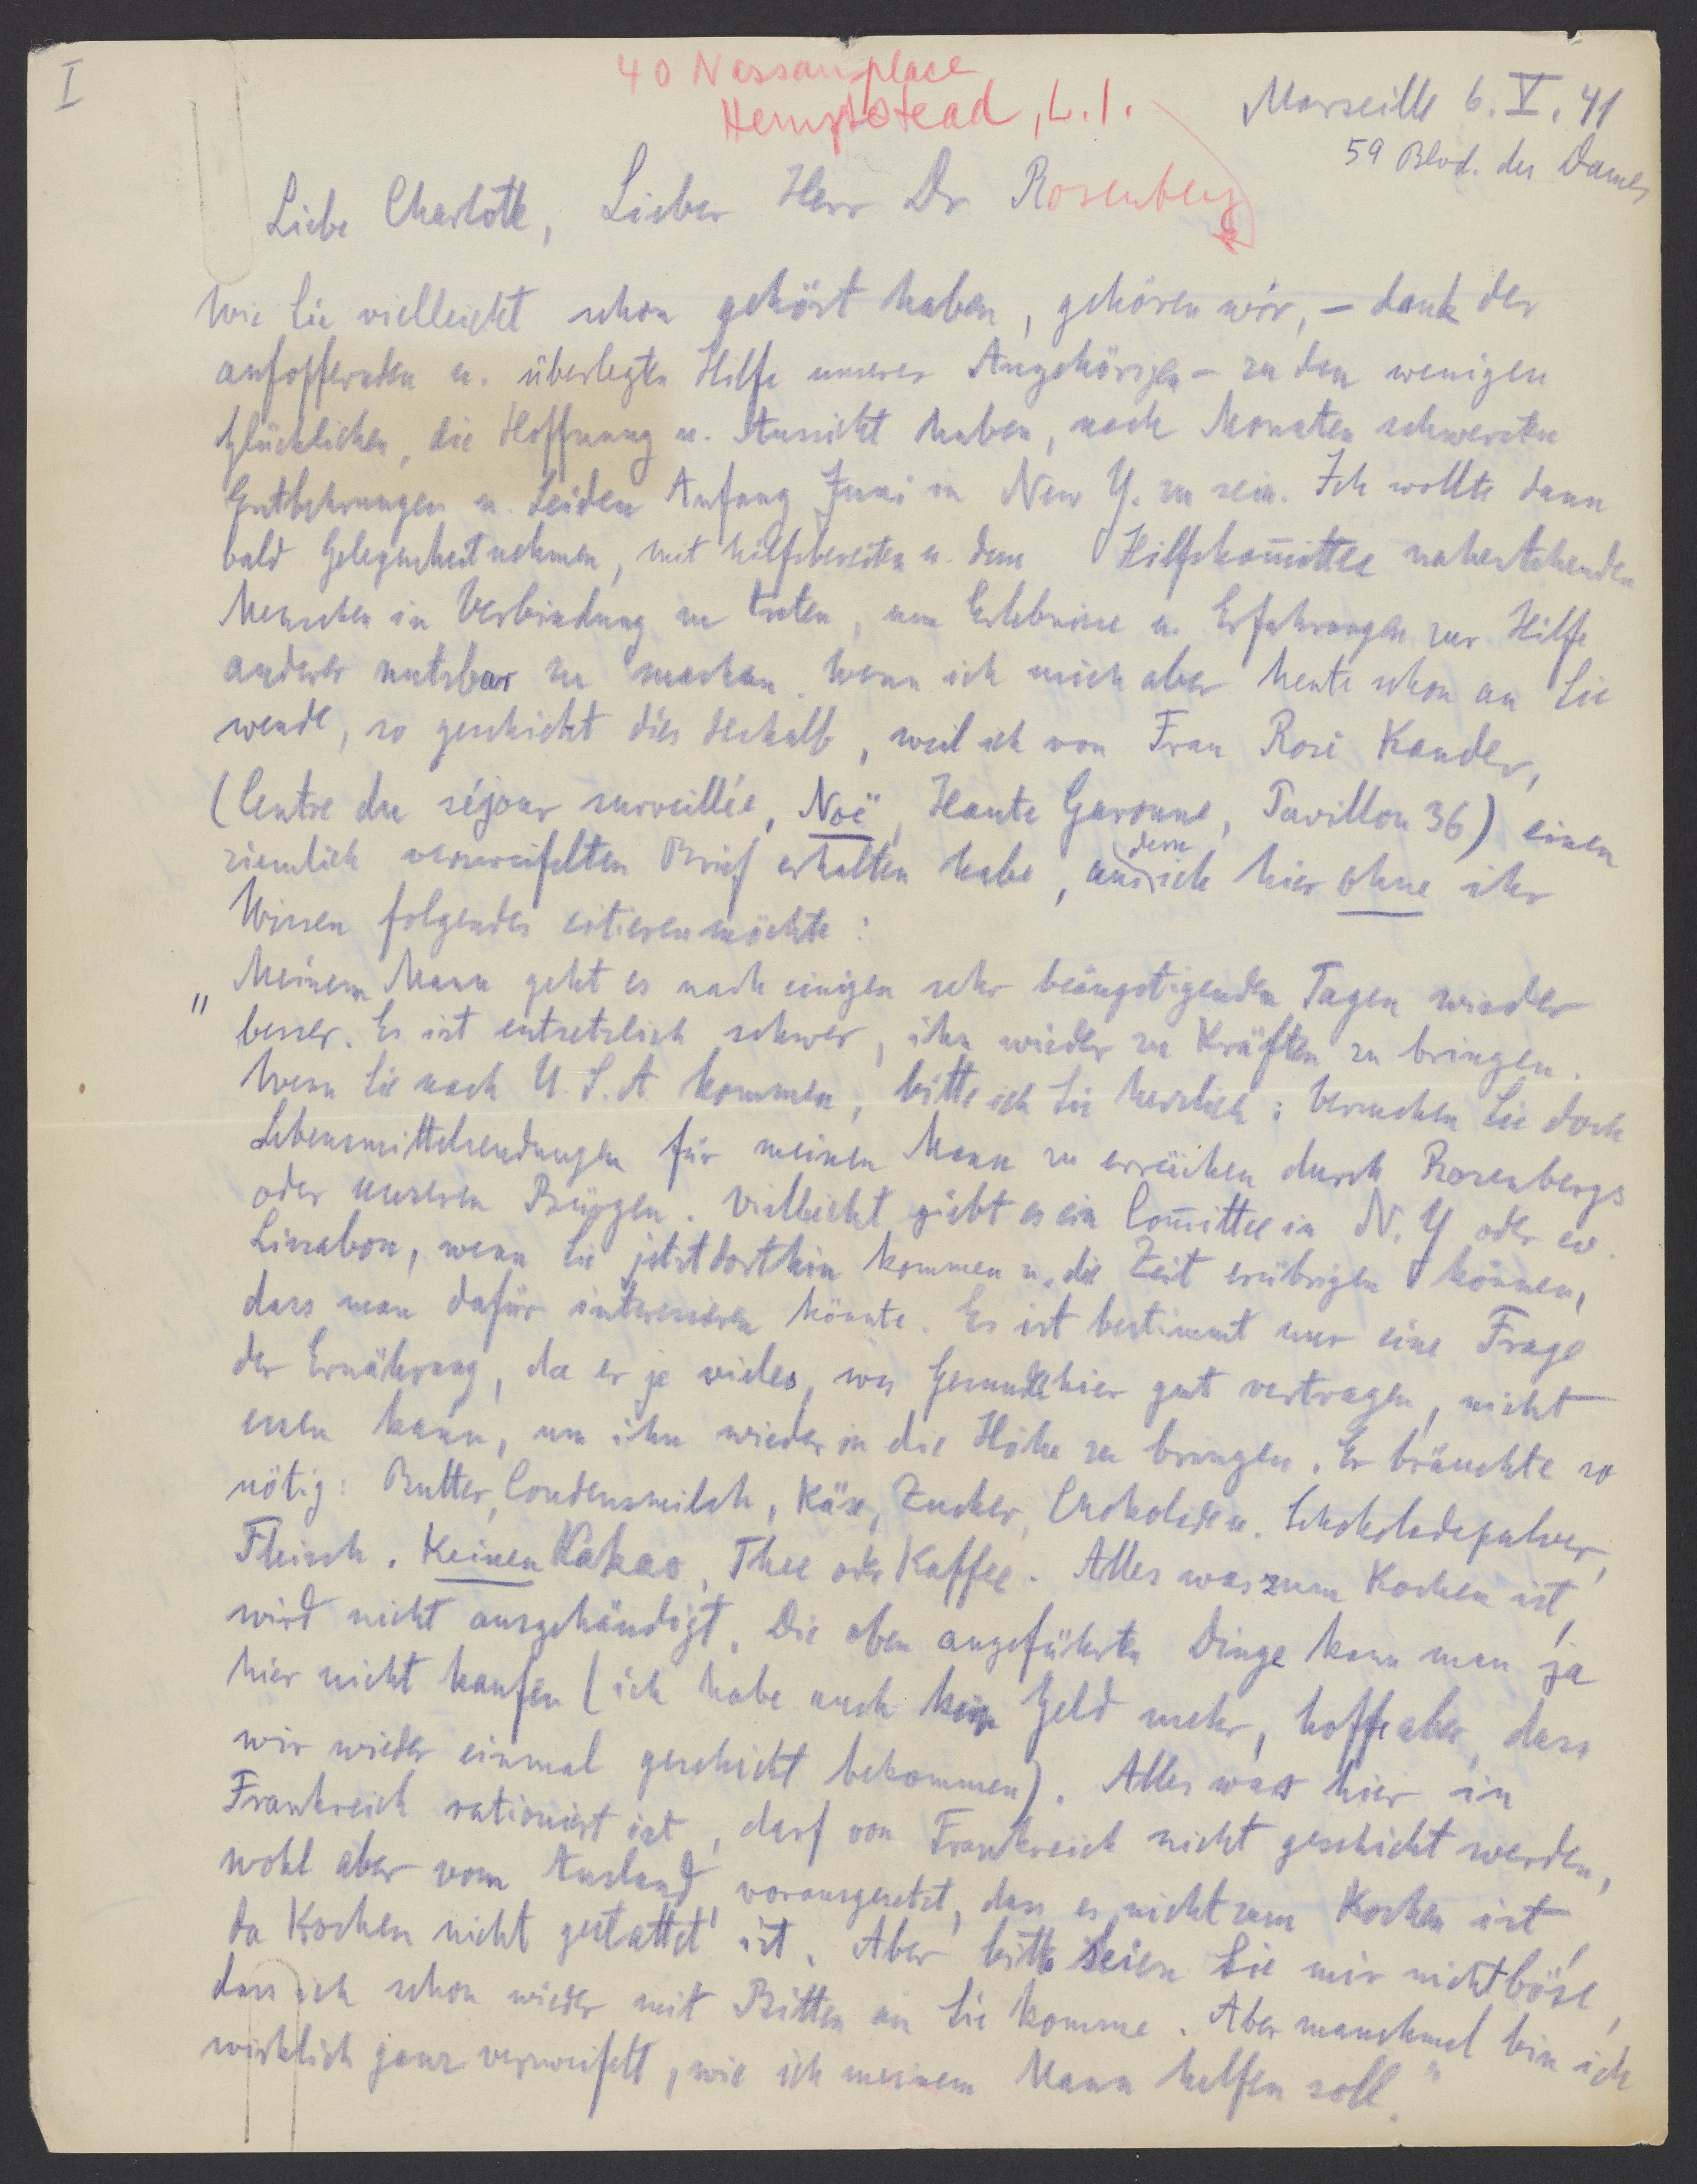 I
40 Nassau place
Hempstead, L.I.
Marseille 6. V. 41
59 Blvd. des Dames
Liebe Charlotte, Lieber Herr Dr Rosenberg
Wie Sie vielleicht schon gehört haben, gehören wir, – dank der
aufopfernden u. überlegten Hilfe unserer Angehörigen – zu den wenigen
Glücklichen, die Hoffnung u. Aussicht haben, nach Monaten schwersten
Entbehrungen u. Leiden Anfang Juni in New Y. zu sein. Ich wollte dann
bald Gelegenheit nehmen, mit hilfsbereiten u. dem Hilfskom̅ittee nahestehenden
Menschen in Verbindung zu treten, um Erlebnisse u. Erfahrungen zur Hilfe
anderer nutzbar zu machen. Wenn ich mich aber heute schon an Sie
wende, so geschieht dies deshalb, weil ich von Frau Rosi Kander,
(Centre du séjour surveillée, Noë, Haute Garonne, Pavillon 36) einen
ziemlich verzweifelten Brief erhalten habe, aus dem ich hier ohne ihr
Wissen folgendes citieren möchte:
"Meinem Mann geht es nach einigen sehr beängstigenden Tagen wieder
besser. Es ist entsetzlich schwer, ihn wieder zu Kräften zu bringen.
Wenn Sie nach U.S.A kommen, bitte ich Sie herzlich: Versuchen Sie doch
Lebensmittelsendungen für meinen Mann zu erreichen durch Rosenbergs
oder unseren Bürgen. Vielleicht giebt es ein Com̅ittee in N.Y oder ev.
Lissabon, wenn Sie jetzt dorthin kommen u. die Zeit erübrigen können,
dass man dafür interessieren könnte. Es ist bestimmt nur eine Frage
der Ernährung, da er ja vieles, was Gesunde hier gut vertragen, nicht
essen kann, um ihn wieder in die Höhe zu bringen. Er bräuchte so
nötig: Butter, Condensmilch, Käse, Zucker, Chokolade u. Schokoladepulver,
Fleisch. Keinen Kakao, Thee oder Kaffee. Alles was zum Kochen ist,
wird nicht ausgehändigt. Die oben angeführten Dinge kann man ja
hier nicht kaufen (ich habe auch kein Geld mehr, hoffe aber, dass
wir wieder einmal geschickt bekommen). Alles was hier in
Frankreich rationiert ist, darf von Frankreich nicht geschickt werden,
wohl aber vom Ausland, vorausgesetzt, dass es nicht zum Kochen ist,
da Kochen nicht gestattet ist. Aber bitte seien Sie mir nicht böse,
dass ich schon wieder mit Bitten an Sie komme. Aber manchmal bin ich
wirklich ganz verzweifelt, wie ich meinem Mann helfen soll."